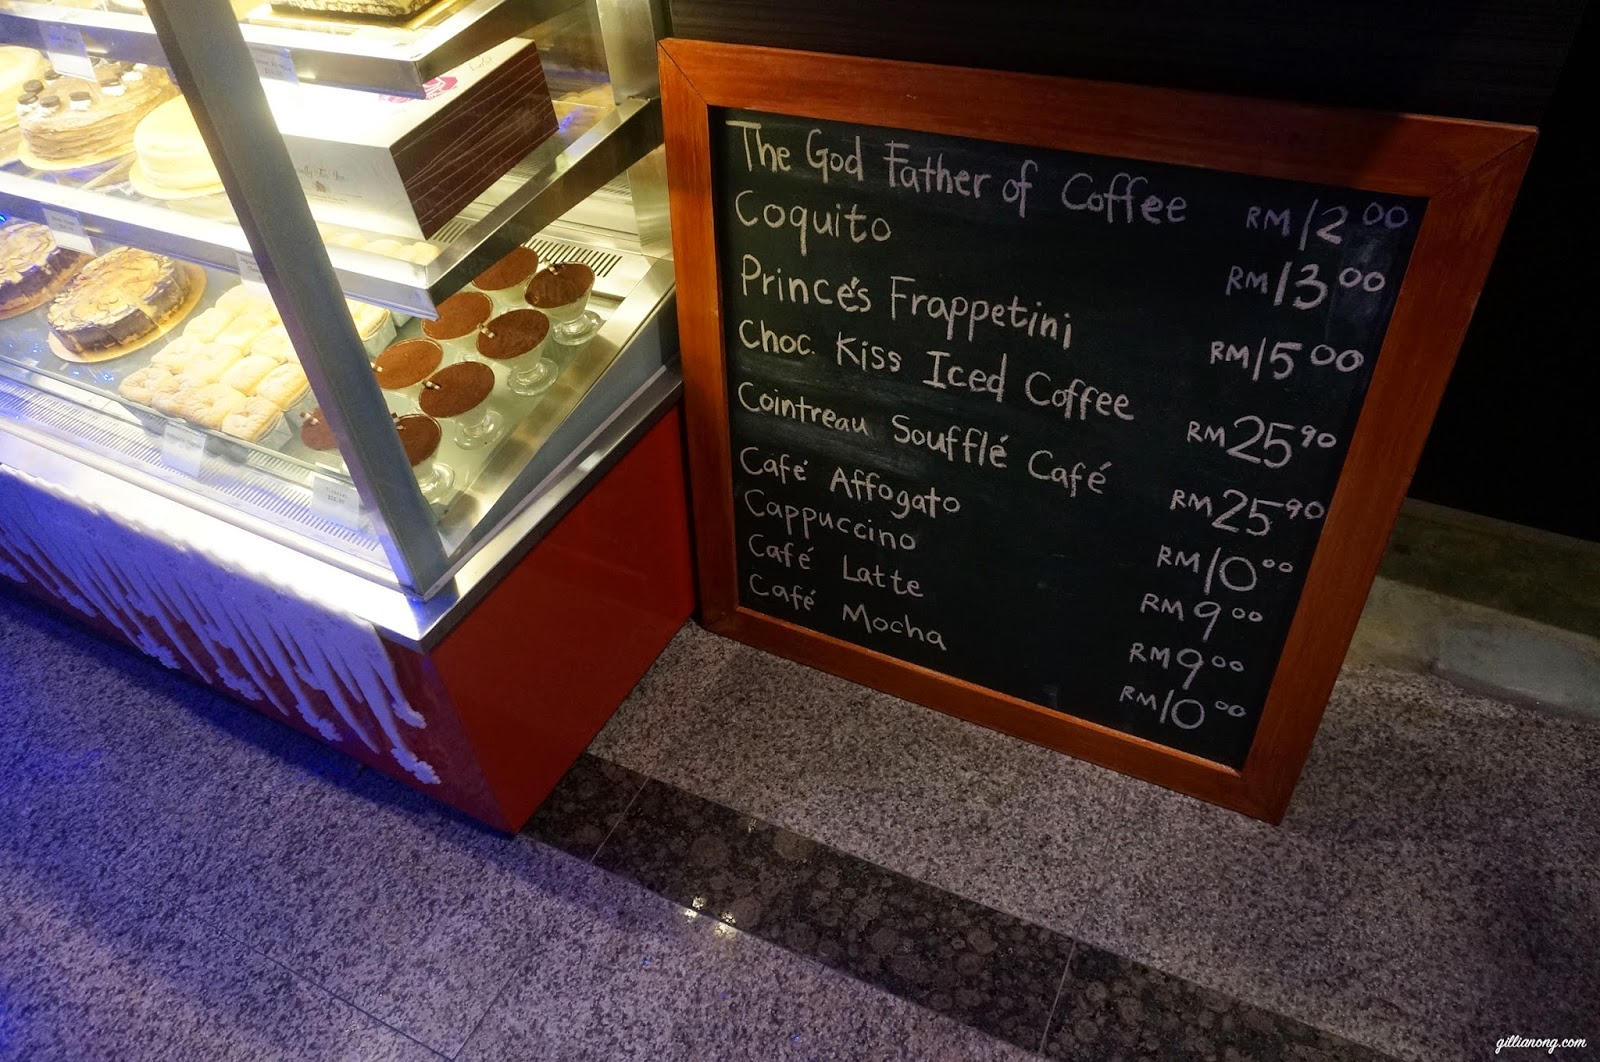 The God Father of Coffee RM 12 00
Coquito RM 13 00
Prince's Frappetini RM 15 00
Choc. Kiss Iced Coffee RM 25 90
Cointreau Soufflé Café RM 25 90
Café Affogato RM 10 00
Cappuccino RM 9 00
Café Latte RM 9 00
Café Mocha RM 10 00
gillianong.com